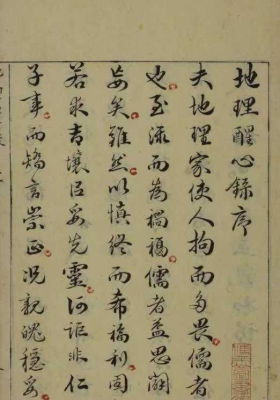 地理醒心錄序
夫地理家使人拘而多畏儒者
也至流而為禍福儒者益思闢
妄矣雖然以慎終而希福利固
若求吉壤以妥先靈何詎非仁
子事而矯言崇正況親魄穩妥